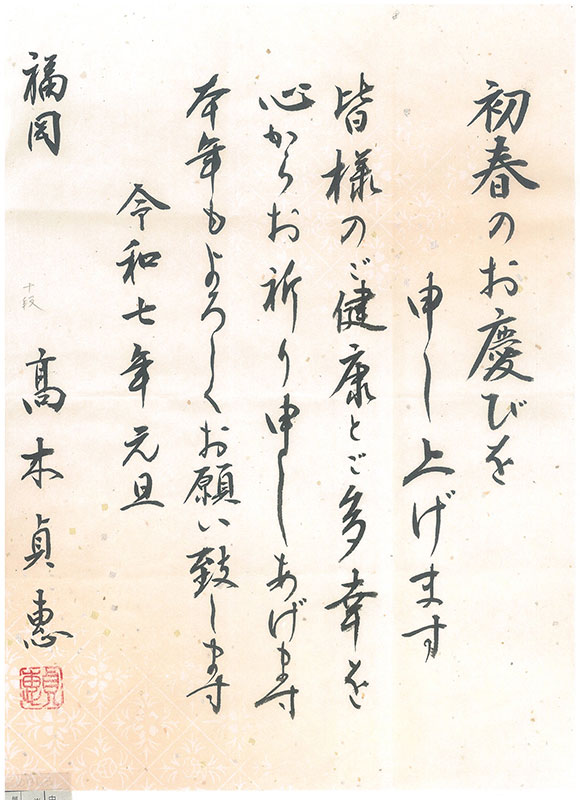 初春のお慶びを
申し上げます
皆様のご健康とご多幸を
心からお祈り申しあげます
本年もよろしくお願い致します
令和七年元旦
福岡
十段
髙木貞惠
貞惠